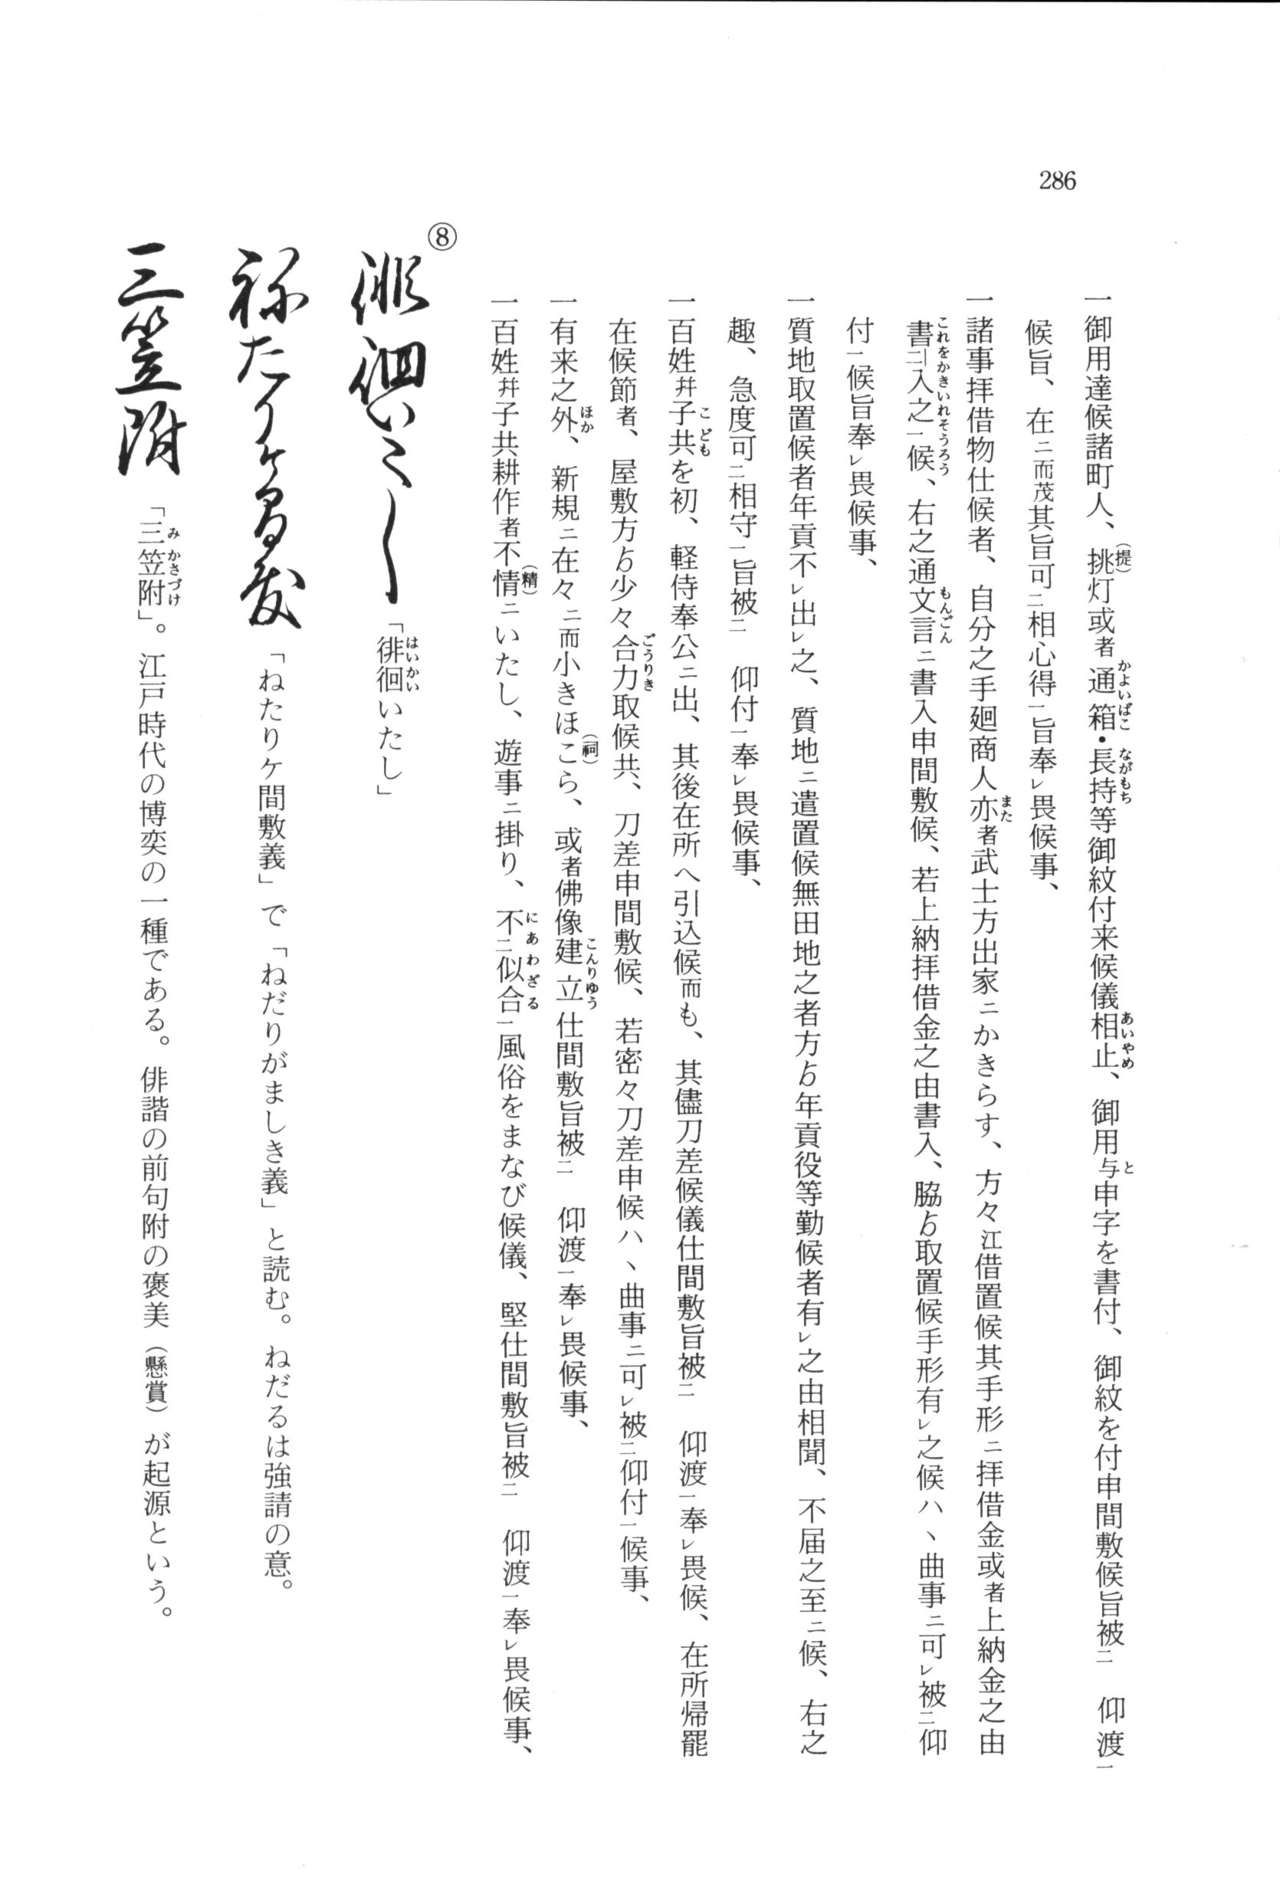 286
一御用達候諸町人、挑(提)灯或者通箱・長持等御紋付来候儀相止、御用与申字を書付、御紋を付申間敷候旨被二　仰渡一
候旨、在ニ而茂其旨可二相心得一旨奉レ畏候事、
一諸事拝借物仕候者、自分之手廻商人亦者武士方出家ニかきらす、方々江借置候其手形ニ拝借金或者上納金之由
書二入之一候、右之通文言ニ書入申間敷候、若上納拝借金之由書入、脇ゟ取置候手形有レ之候ハ、曲事ニ可レ被二仰
付一候旨奉レ畏候事、
一質地取置候者年貢不レ出レ之、質地ニ遣置候無田地之者方ゟ年貢役等勤候者有レ之由相聞、不届之至ニ候、右之
趣、急度可二相守一旨被二　仰付一奉レ畏候事、
一百姓幷子共を初、軽侍奉公ニ出、其後在所へ引込候而も、其儘刀差候儀仕間敷旨被二　仰渡一奉レ畏候、在所帰罷
在候節者、屋敷方ゟ少々合力取候共、刀差申間敷候、若密々刀差申候ハ、曲事ニ可レ被二仰付一候事、
一有来之外、新規ニ在々ニ而小きほこら(祠)、或者佛像建立仕間敷旨被二　仰渡一奉レ畏候事、
一百姓幷子共耕作者不情(精)ニいたし、遊事ニ掛り、不二似合一風俗をまなび候儀、堅仕間敷旨被二　仰渡一奉レ畏候事、
⑧
徘徊いたし「徘徊いたし」
ねたりヶ間敷義「ねたりケ間敷義」で「ねだりがましき義」と読む。ねだるは強請の意。
三笠附「三笠附」。江戸時代の博奕の一種である。俳諧の前句附の褒美（懸賞）が起源という。